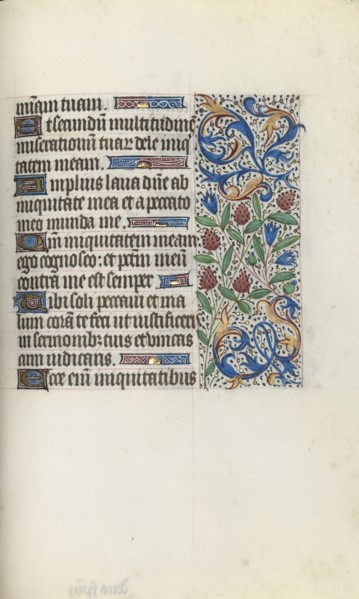 m̄am tuam.
Et secundū multitudinē
miserationū tuaꝝ dele iniq
tatem meam.
Amplius laua dn̄e ab
iniquitate mea et a peccato
meo munda me.
Qm̄ iniquitatem meam
ego cognosco: et pctm̄ meū
contra me est semper
Tibi soli peccaui et ma
lum corā te feci ut iustificeris
in sermonibꝫ tuis et vincas
cum iudicaris.
Ecce em̄ iniquitatibus